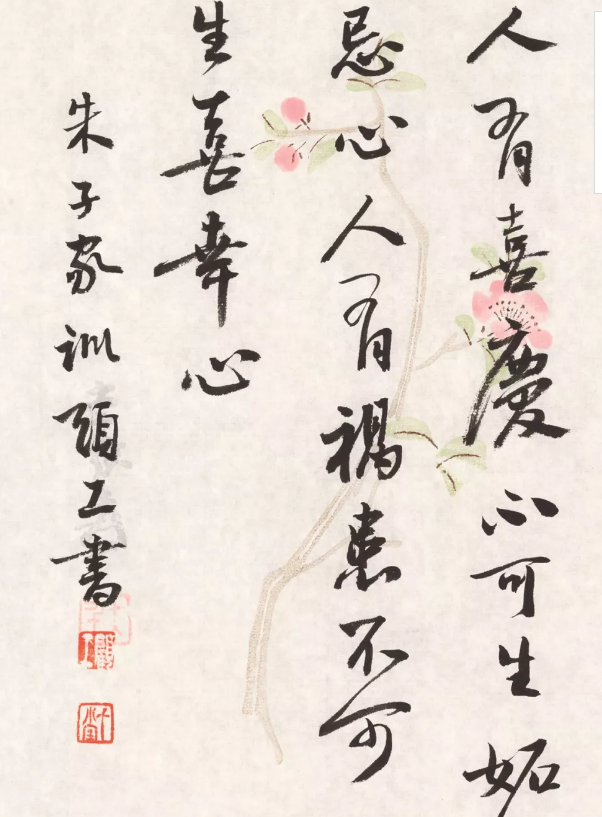 人有喜慶不可生妬
忌心人有禍患不可
生喜幸心
朱子家訓顧工書